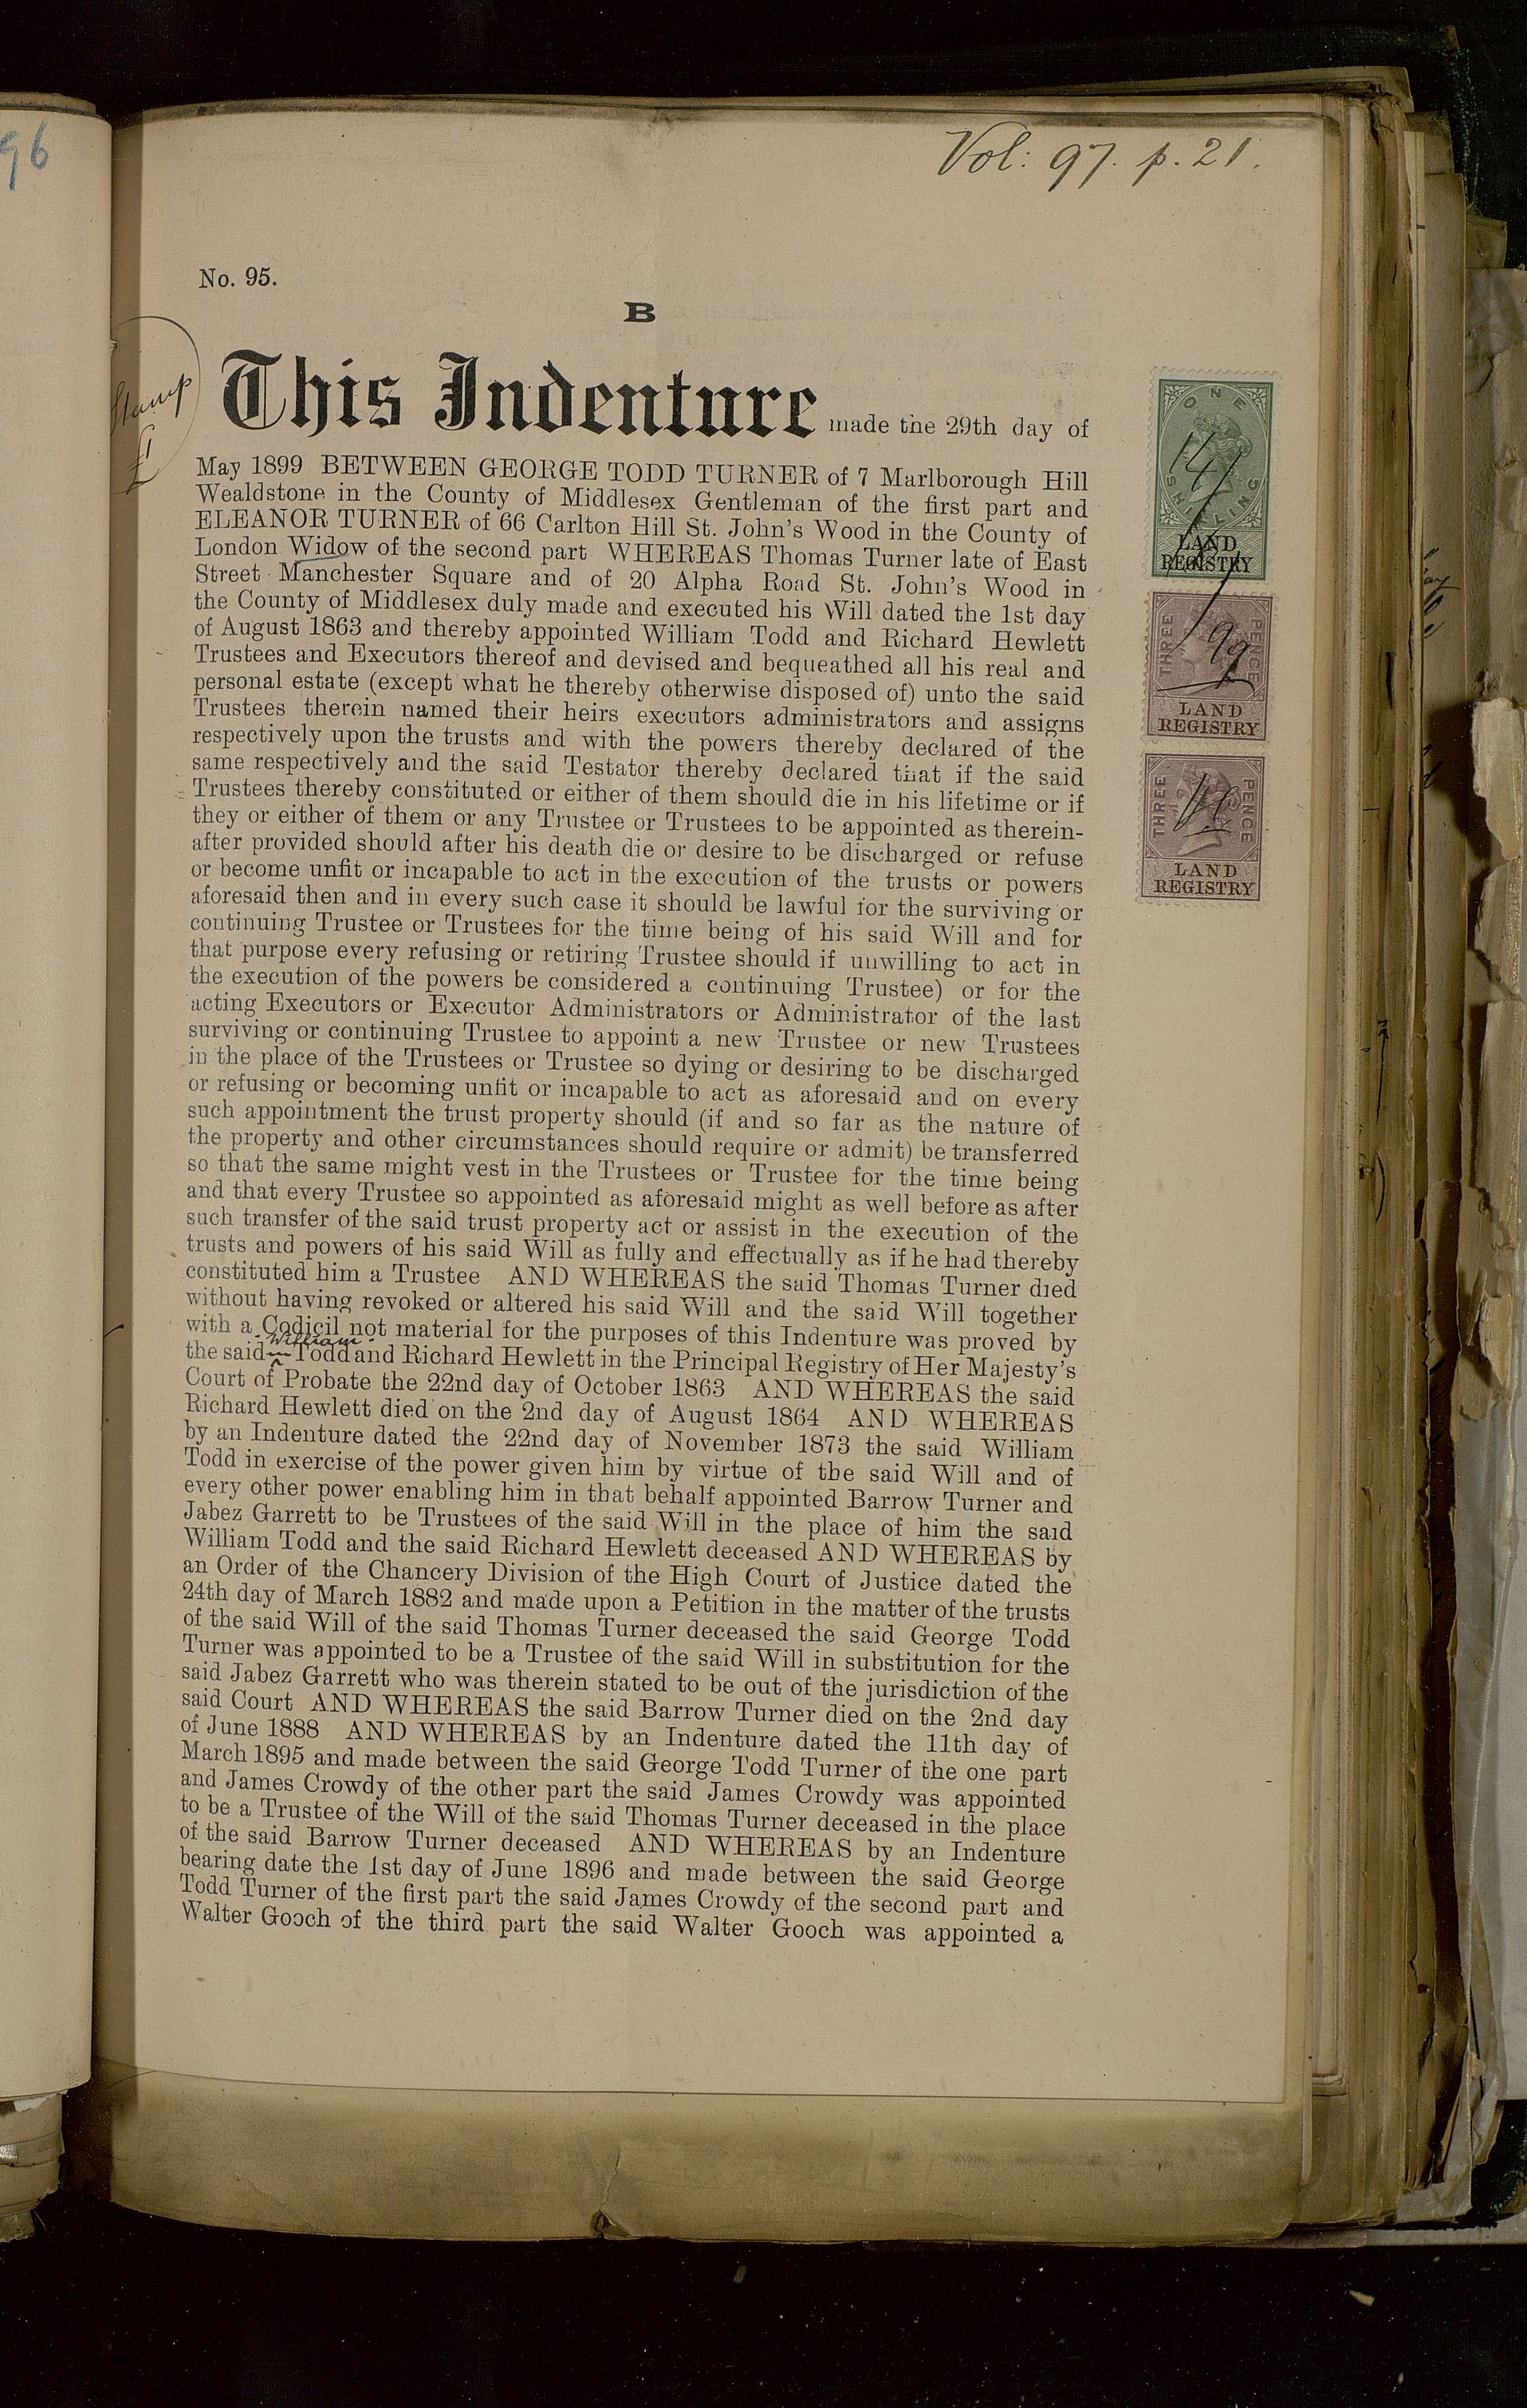 96
Vol: 97. p. 21.
No. 95.
B
Stamp
£1
This Indenture made the 29th day of
May 1899 BETWEEN GEORGE TODD TURNER of 7 Marlborough Hill
Wealdstone in the County of Middlesex Gentleman of the first part and
ELEANOR TURNER of 66 Carlton Hill St. John's Wood in the County of
London Widow of the second part WHEREAS Thomas Turner late of East
Street Manchester Square and of 20 Alpha Road St. John's Wood in
the County of Middlesex duly made and executed his Will dated the 1st day
of August 1863 and thereby appointed William Todd and Richard Hewlett
Trustees and Executors thereof and devised and bequeathed all his real and
personal estate (except what he thereby otherwise disposed of) unto the said
Trustees therein named their heirs executors administrators and assigns
respectively upon the trusts and with the powers thereby declared of the
same respectively and the said Testator thereby declared that if the said
Trustees thereby constituted or either of them should die in his lifetime or if
they or either of them or any Trustee or Trustees to be appointed as therein-
after provided should after his death die or desire to be discharged or refuse
or become unfit or incapable to act in the execution of the trusts or powers
aforesaid then and in every such case it should be lawful for the surviving or
continuing Trustee or Trustees for the time being of his said Will and for
that purpose every refusing or retiring Trustee should if unwilling to act in
the execution of the powers be considered a continuing Trustee) or for the
acting Executors or Executor Administrators or Administrator of the last
surviving or continuing Trustee to appoint a new Trustee or new Trustees
in the place of the Trustees or Trustee so dying or desiring to be discharged
or refusing or becoming unfit or incapable to act as aforesaid and on every
such appointment the trust property should (if and so far as the nature of
the property and other circumstances should require or admit) be transferred
so that the same might vest in the Trustees or Trustee for the time being
and that every Trustee so appointed as aforesaid might as well before as after
such transfer of the said trust property act or assist in the execution of the
trusts and powers of his said Will as fully and effectually as if he had thereby
constituted him a Trustee AND WHEREAS the said Thomas Turner died
without having revoked or altered his said Will and the said Will together
with a Codicil not material for the purposes of this Indenture was proved by
the said William Todd and Richard Hewlett in the Principal Registry of Her Majesty's
Court of Probate the 22nd day of October 1863 AND WHEREAS the said
Richard Hewlett died on the 2nd day of August 1864 AND WHEREAS
by an Indenture dated the 22nd day of November 1873 the said William
Todd in exercise of the power given him by virtue of the said Will and of
every other power enabling him in that behalf appointed Barrow Turner and
Jabez Garrett to be Trustees of the said Will in the place of him the said
William Todd and the said Richard Hewlett deceased AND WHEREAS by
an Order of the Chancery Division of the High Court of Justice dated the
24th day of March 1882 and made upon a Petition in the matter of the trusts
of the said Will of the said Thomas Turner deceased the said George Todd
Turner was appointed to be a Trustee of the said Will in substitution for the
said Jabez Garrett who was therein stated to be out of the jurisdiction of the
said Court AND WHEREAS the said Barrow Turner died on the 2nd day
of June 1888 AND WHEREAS by an Indenture dated the 11th day of
March 1895 and made between the said George Todd Turner of the one part
and James Crowdy of the other part the said James Crowdy was appointed
to be a Trustee of the Will of the said Thomas Turner deceased in the place
of the said Barrow Turner deceased AND WHEREAS by an Indenture
bearing date the 1st day of June 1896 and made between the said George
Todd Turner of the first part the said James Crowdy of the second part and
Walter Gooch of the third part the said Walter Gooch was appointed a
ONE
SHILLING
LAND
REGISTRY
THREE PENCE
LAND
REGISTRY
THREE PENCE
LAND
REGISTRY